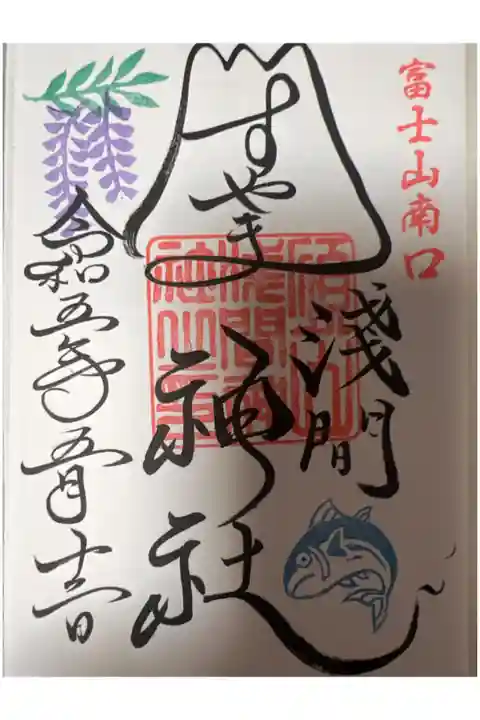 富士山南口
すやま
浅間
神社
令和五年五月十二日